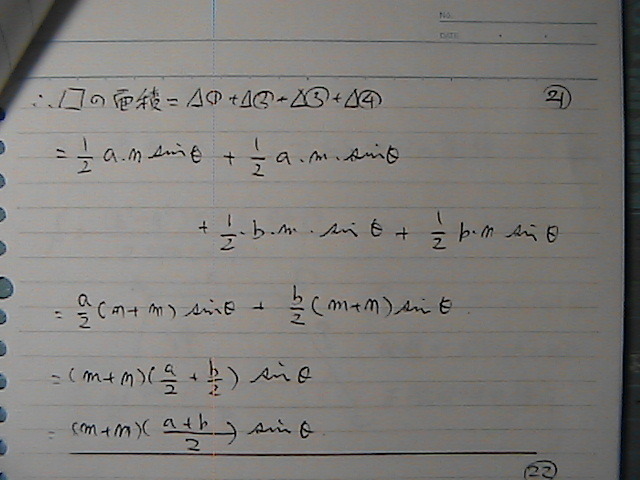 NO.
DATE
∴□の面積=△①+△②+△③+△④ ㉑
=1/2 a・n sinθ + 1/2 a・m・sinθ
+ 1/2・b・m・sinθ + 1/2 b・n sinθ
=a/2(n+m) sinθ + b/2(m+n) sinθ.
=(m+n)(a/2 + b/2) sinθ
=(m+n)(a+b/2) sinθ.
㉒